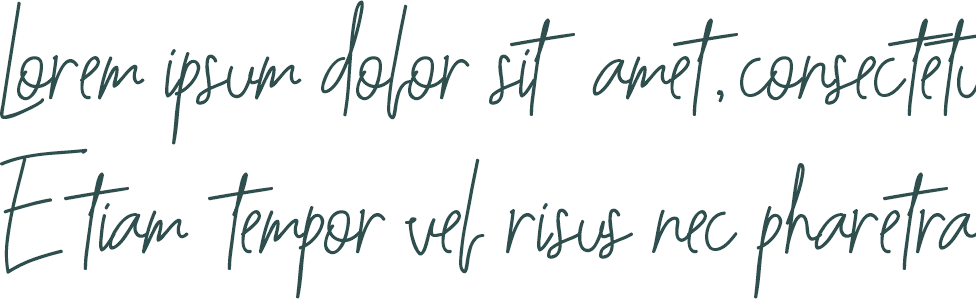 Lorem ipsum dolor sit amet, consectetu
Etiam tempor vel risus nec pharetra